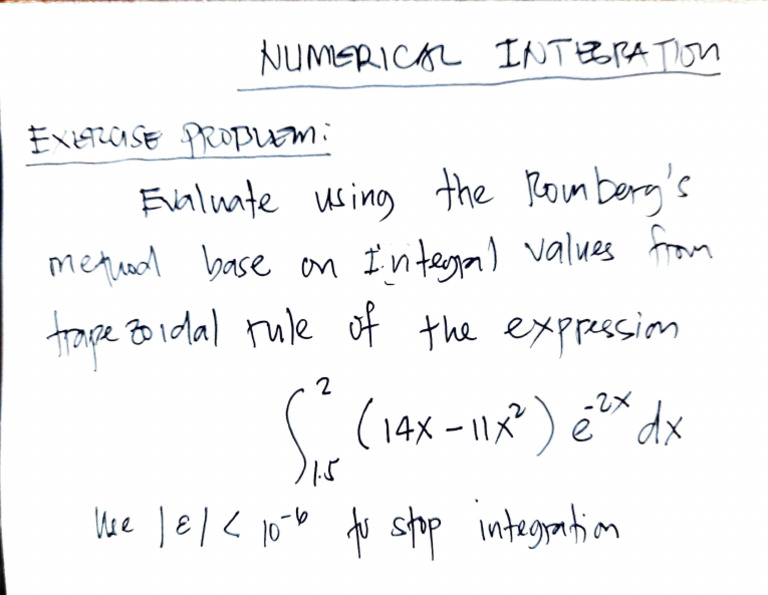 NUMERICAL INTEGRATION
EXERCISE PROBLEM:
Evaluate using the Romberg's
method base on Integral values from
trapezoidal rule of the expression
∫₁.₅² (14x - 11x²) e⁻²ˣ dx
Use |ε| < 10⁻⁶ to stop integration